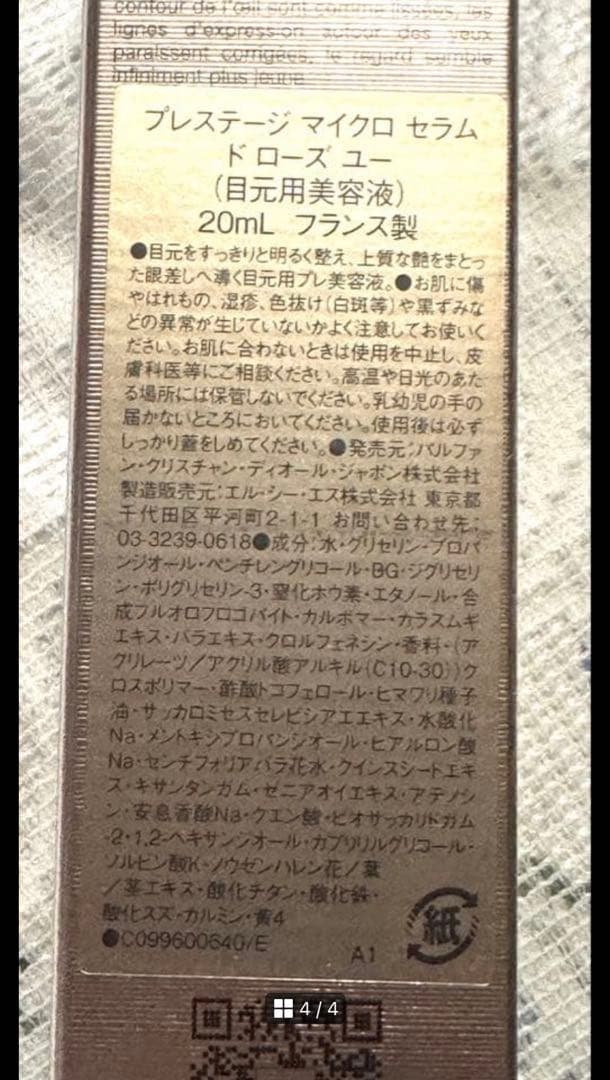 contour de l'œil sont comme lissées, les
lignes d'expression autour des yeux
paraissent corrigées, le regard semble
infiniment plus jeune.
プレステージ マイクロ セラム
ド ローズ ユー
(目元用美容液)
20mL フランス製
●目元をすっきりと明るく整え、上質な艶をまとっ
た眼差しへ導く目元用プレ美容液。●お肌に傷
やはれもの、湿疹、色抜け(白斑等)や黒ずみな
どの異常が生じていないかよく注意してお使いく
ださい。お肌に合わないときは使用を中止し、皮
膚科医等にご相談ください。高温や日光のあた
る場所には保管しないでください。乳幼児の手の
届かないところにおいてください。使用後は必ず
しっかり蓋をしめてください。●発売元:パルファ
ン・クリスチャン・ディオール・ジャポン株式会社
製造販売元:エル・シー・エス株式会社 東京都
千代田区平河町2-1-1 お問い合わせ先:
03-3239-0618●成分:水・グリセリン・プロパ
ンジオール・ペンチレングリコール・BG・ジグリセリ
ン・ポリグリセリン-3・窒化ホウ素・エタノール・合
成フルオロフロゴパイト・カルボマー・カラスムギ
エキス・バラエキス・クロルフェネシン・香料・(ア
クリレーツ/アクリル酸アルキル(C10-30))ク
ロスポリマー・酢酸トコフェロール・ヒマワリ種子
油・サッカロミセスセレビシアエエキス・水酸化
Na・メントキシプロパンジオール・ヒアルロン酸
Na・センチフォリアバラ花水・クインスシードエキ
ス・キサンタンガム・ゼニアオイエキス・アデノシ
ン・安息香酸Na・クエン酸・ビオサッカリドガム
-2・1,2-ヘキサンジオール・カプリリルグリコール・
ソルビン酸K・ノウゼンハレン花/葉
/茎エキス・酸化チタン・酸化鉄・
酸化スズ・カルミン・黄4
●C099600640/E
A1
紙
4/4